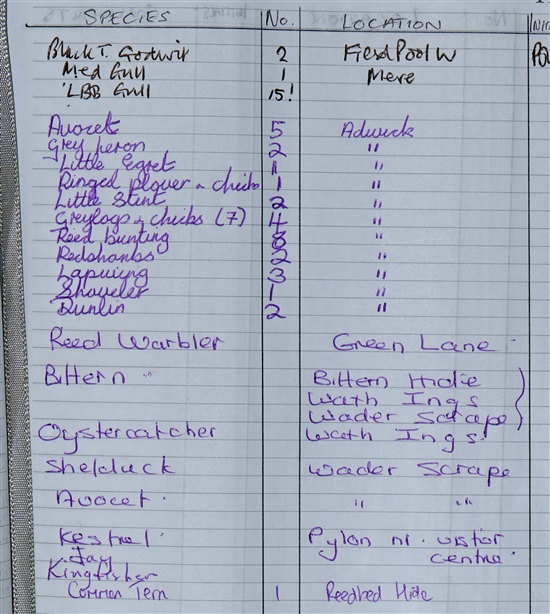 SPECIES No. LOCATION
Black T. Godwit 2 Field Pool W
Med Gull 1 Mere
LBB Gull 15!
Avocet 5 Adwick
Grey heron 2 "
Little Egret 1 "
Ringed plover & chicks 1 "
Little Stint 2 "
Greylags & chicks (7) 4 "
Reed bunting 3 "
Redshanks 2 "
Lapwing 3 "
Shoveler 1 "
Dunlin 2 "
Reed Warbler Green Lane
Bittern Bittern Hide
Wath Ings
Wader Scrape
Oystercatcher Wath Ings
Shelduck Wader Scrape
Avocet. " "
Kestrel Pylon nr. visitor
Jay centre.
Kingfisher
Common Tern 1 Reedbed Hide